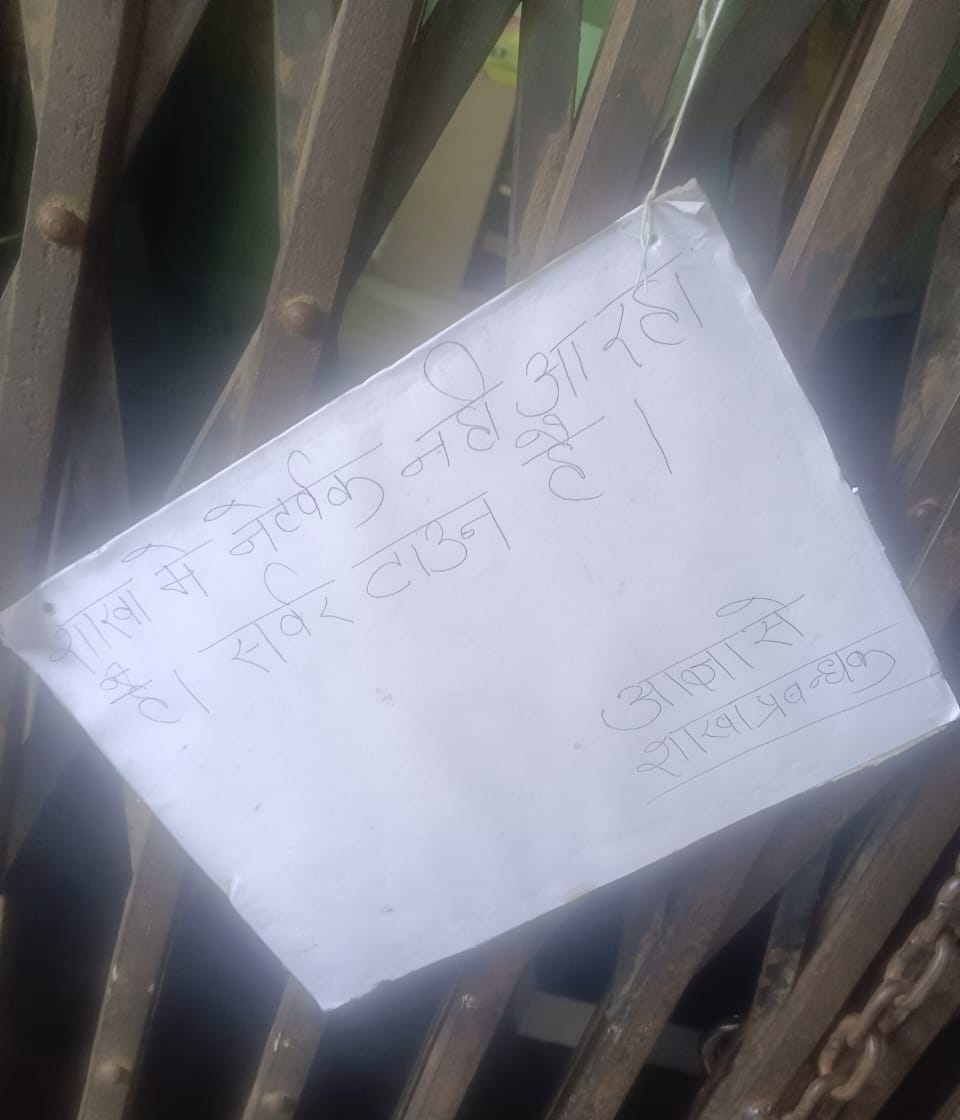 शाखा मे नेटर्वक नही आ रहा
है। सर्वर टाउन है।
आज्ञा से
शाखा प्रबन्धक